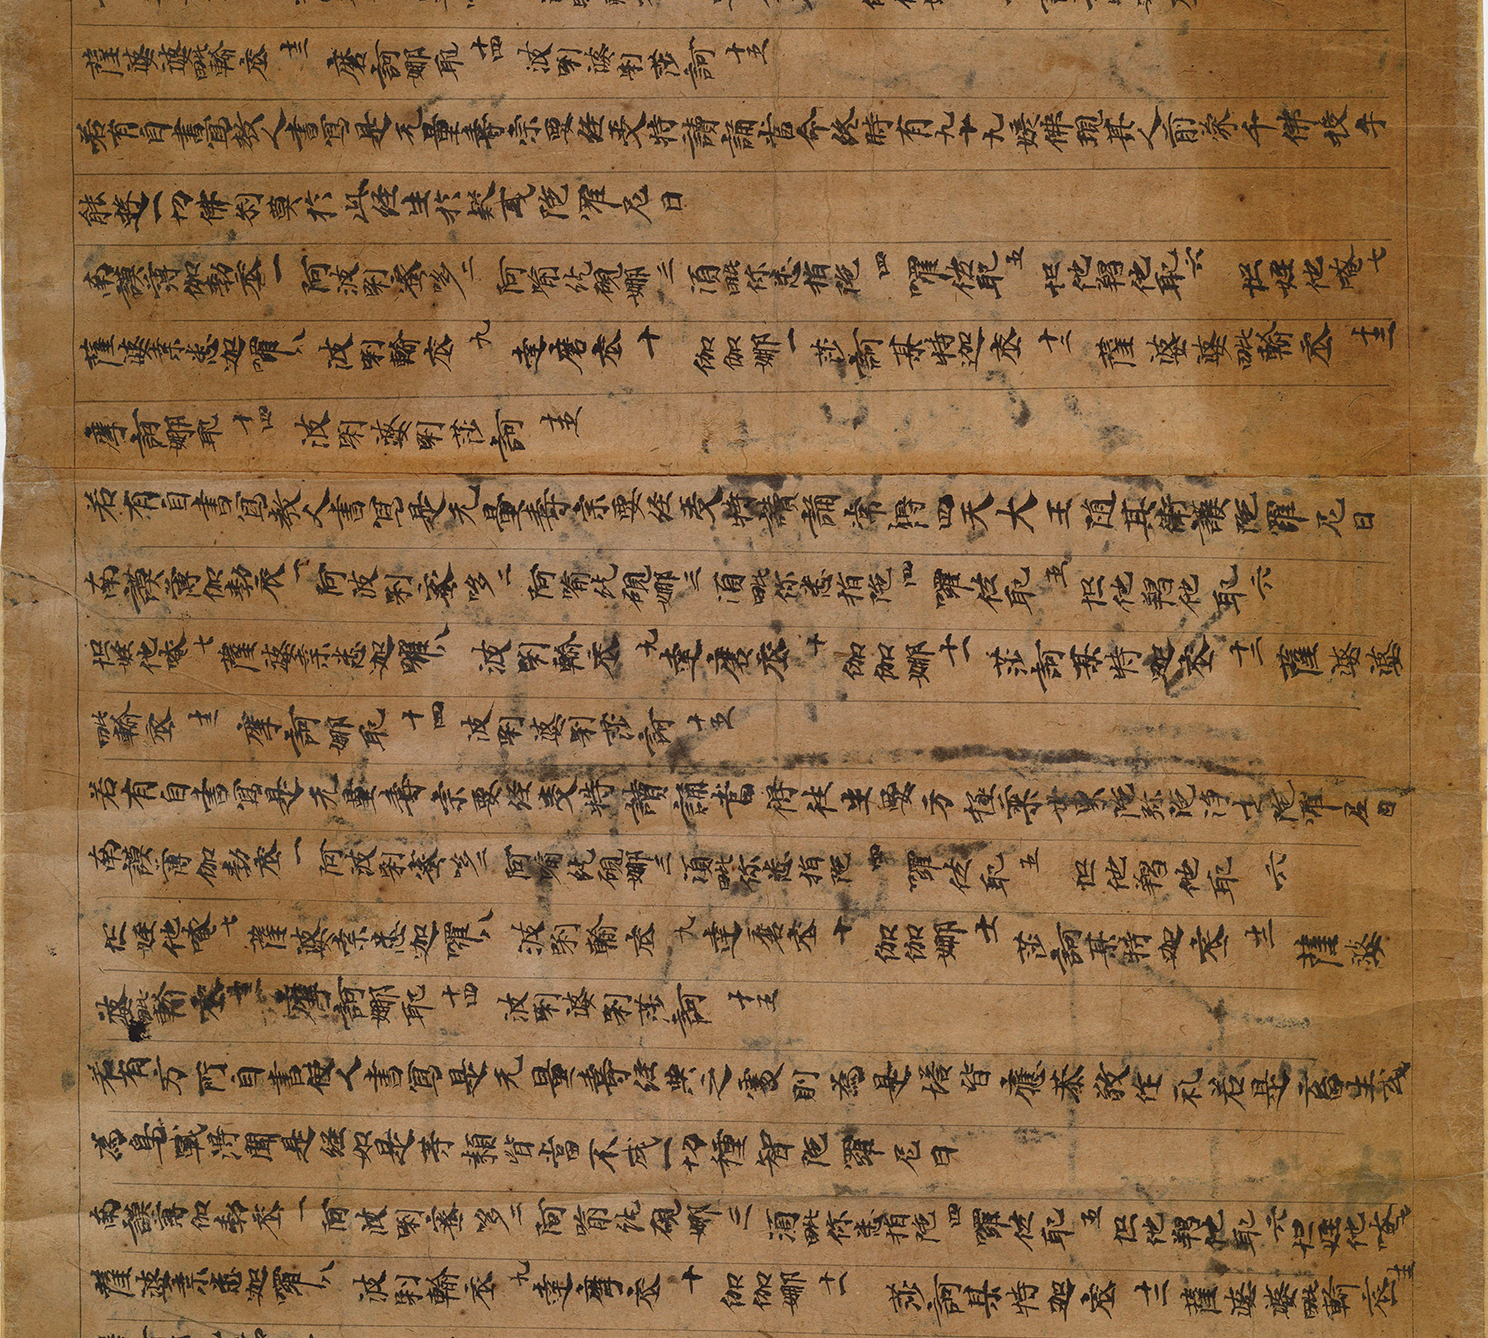 薩婆婆毗輸底十三 磨訶娜耶十四 波唎婆唎莎訶十五
若有自書寫教人書寫是无量壽宗要經受持讀誦當命終時有九十九姟佛現其人前蒙千佛授手
能遊一切佛刹莫於此經生於疑惑陁羅尼曰
南謨薄伽勃底一阿波唎蜜哆二阿喻紇硯娜三須毗你悉指陁四囉佐耶五怛他羯他耶六怛姪他唵七
薩婆桑悉迦囉八波唎輸底九達磨底十伽伽娜一莎訶某特迦底十二薩婆婆毗輸底十三
摩訶娜耶十四波唎婆唎莎訶十五
若有自書寫教人書寫是无量壽宗要經受持讀誦常得四天大王隨其衛護陁羅尼曰
南謨薄伽勃底一阿波唎蜜哆二阿喻紇硯娜三須毗你悉指陁四囉佐耶五怛他羯他耶六
怛姪他唵七薩婆桑悉迦囉八波唎輸底九達磨底十伽伽娜十一莎訶某特迦底十二薩婆婆
毗輸底十三摩訶娜耶十四波唎婆唎莎訶十五
若有自書寫是无量壽宗要經受持讀誦當得往生西方極樂世界阿彌陁淨土陁羅尼曰
南謨薄伽勃底一阿波唎蜜哆二阿喻紇硯娜三須毗你悉指陁四囉佐耶五怛他羯他耶六
怛姪他唵七薩婆桑悉迦囉八波唎輸底九達磨底十伽伽娜十一莎訶某特迦底十二薩婆
婆毗輸底十三摩訶娜耶十四波唎婆唎莎訶十五
若有方所自書使人書寫是无量壽經典之處則為是塔皆應恭敬作礼若是畜生或
為鳥獸得聞是經如是等類皆當不成一切種智陁羅尼曰
南謨薄伽勃底一阿波唎蜜哆二阿喻紇硯娜三須毗你悉指陁四囉佐耶五怛他羯他耶六怛姪他唵七
薩婆桑悉迦囉八波唎輸底九達摩底十伽伽娜十一莎訶某特迦底十二薩婆婆毗輸底十三